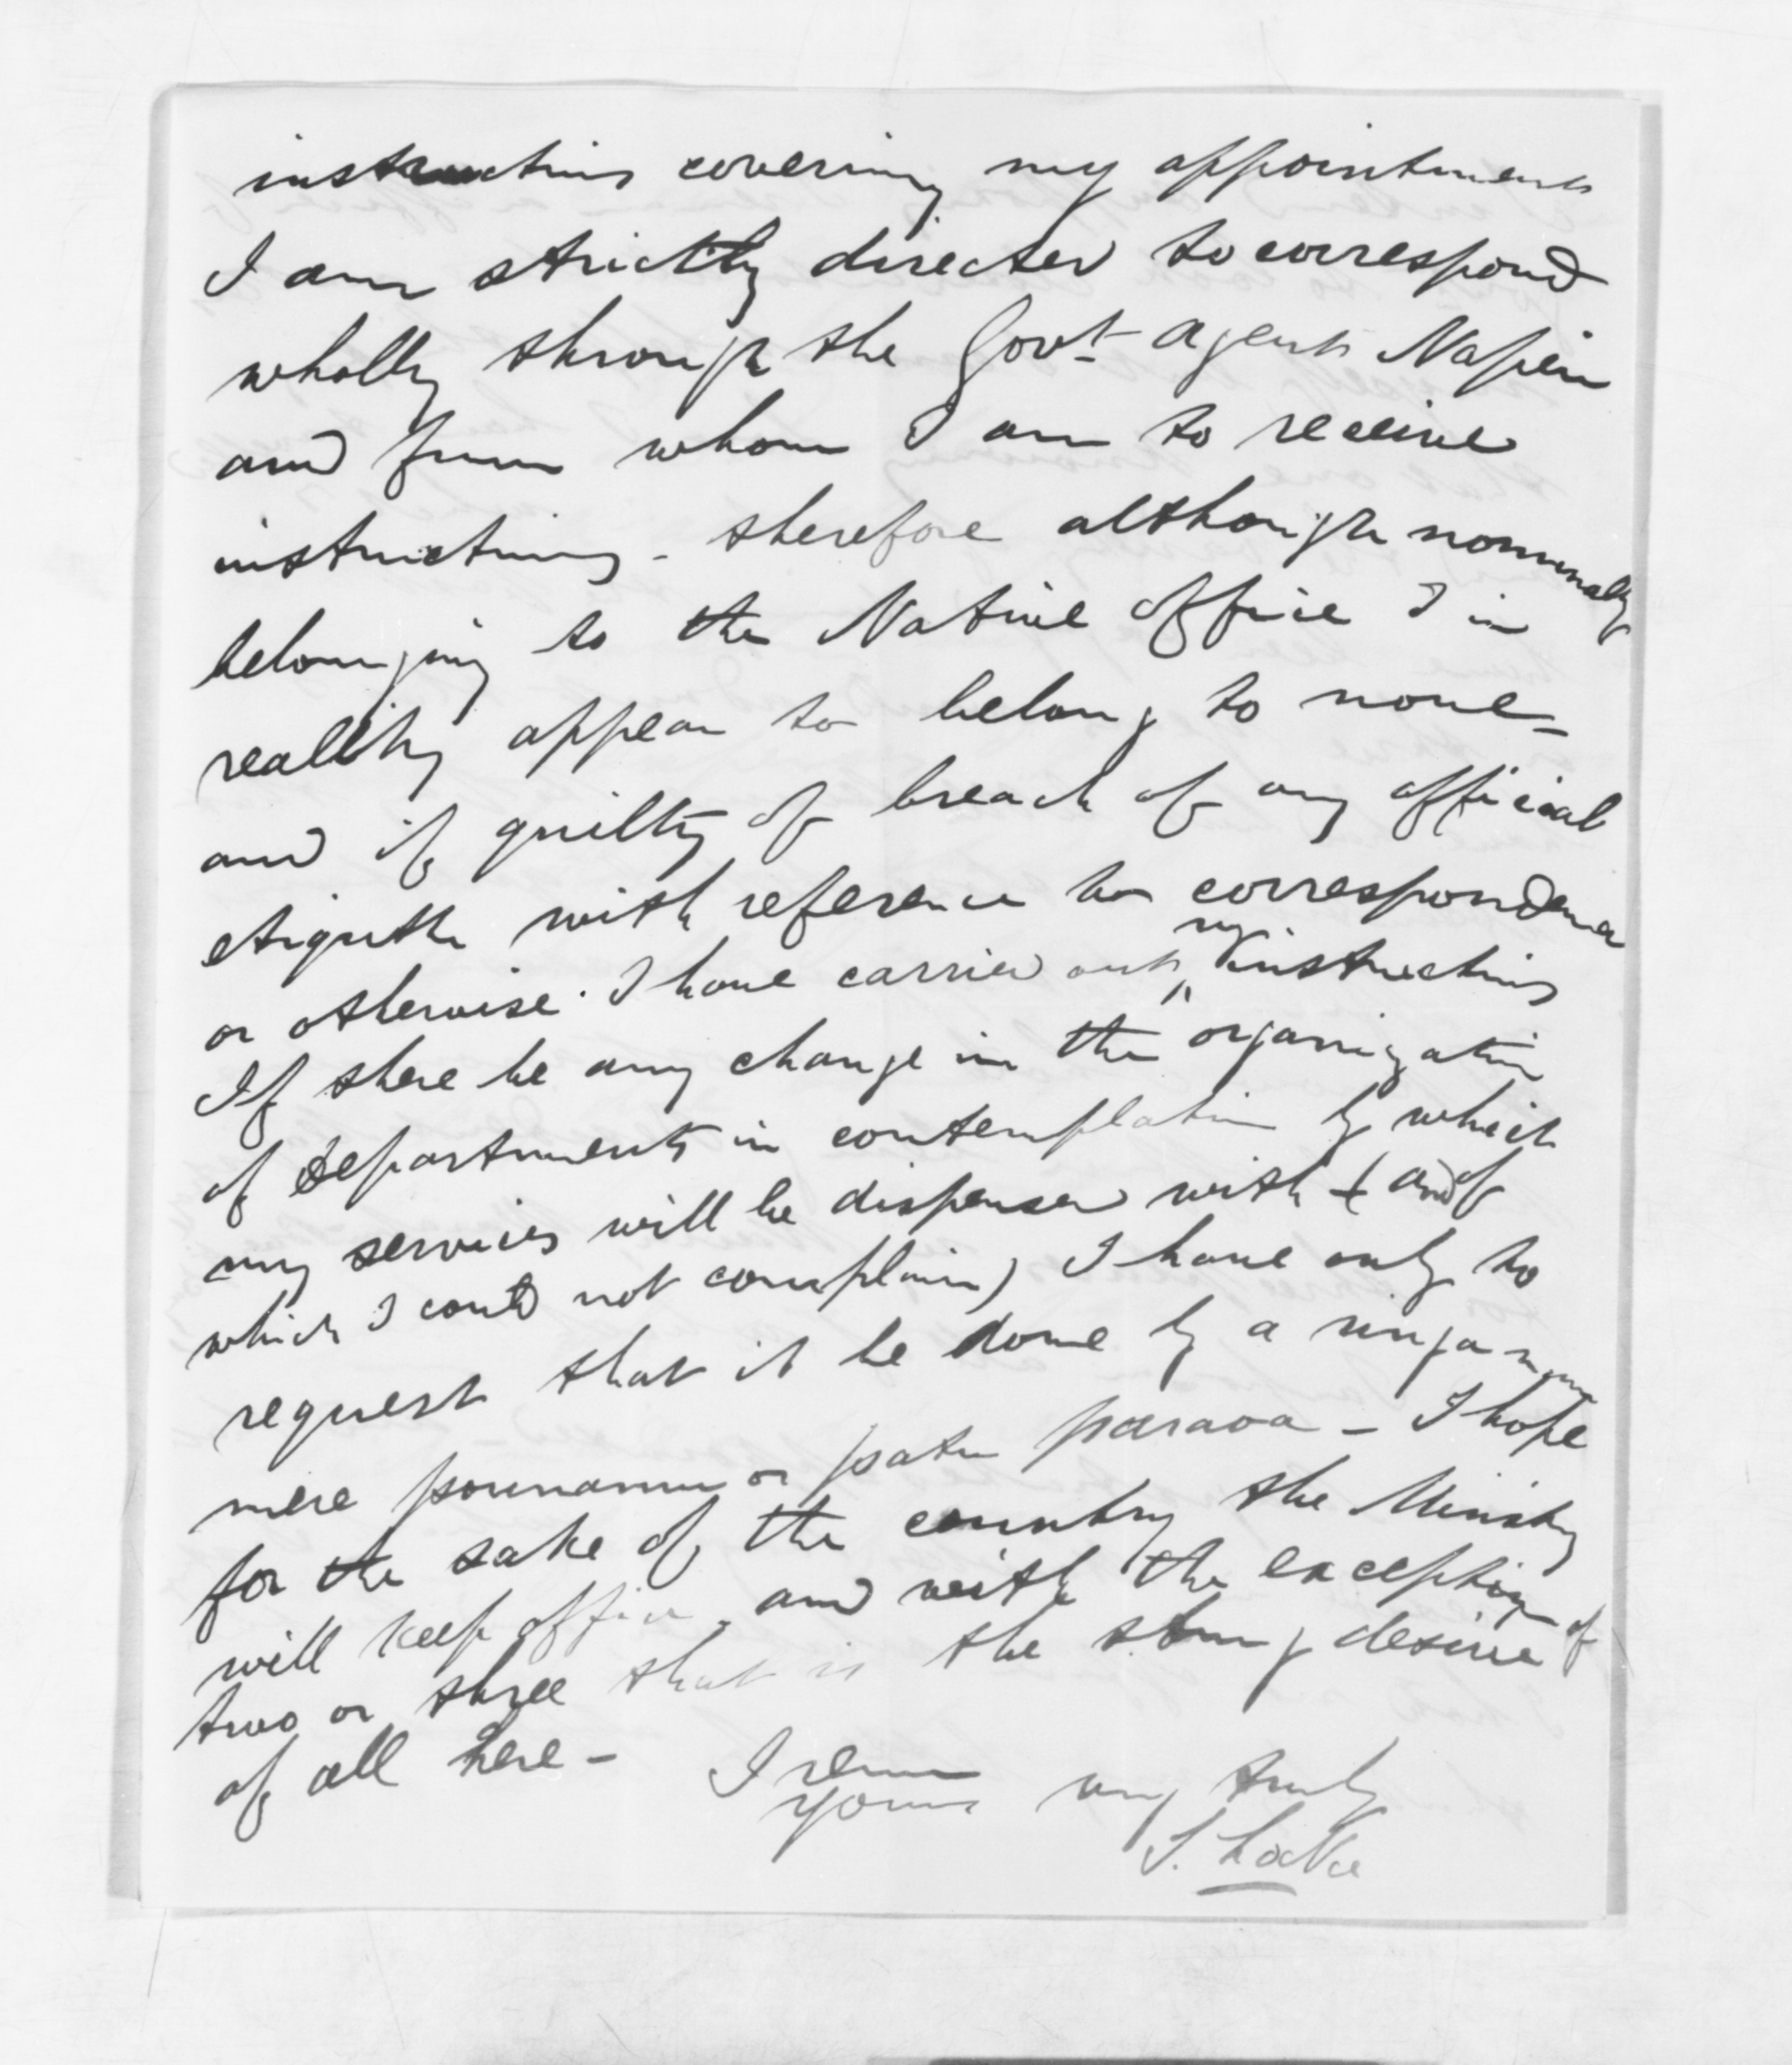 instructions covering my appointment
I am strictly directed to correspond
wholly through the Govt Agent Napier
and from whom I am to receive
instructions - therefore although nominally
belonging to the Native Office I in
reality appear to belong to none -
and if guilty of breach of any official
etiquette with reference to correspondence
or otherwise. I have carried out my instructions
If there be any change in the organization
of departments in contemplation by which
my services will be dispensed with ( and of
which I could not complain) I have only to
request that it be done by a ringa
mere pounamu or patu paraoa - I hope
for the sake of the country the Ministry
will keep office, and with the exception of
two or three that is the strong desire
of all here -
I remain
yours very truly
S. Locke